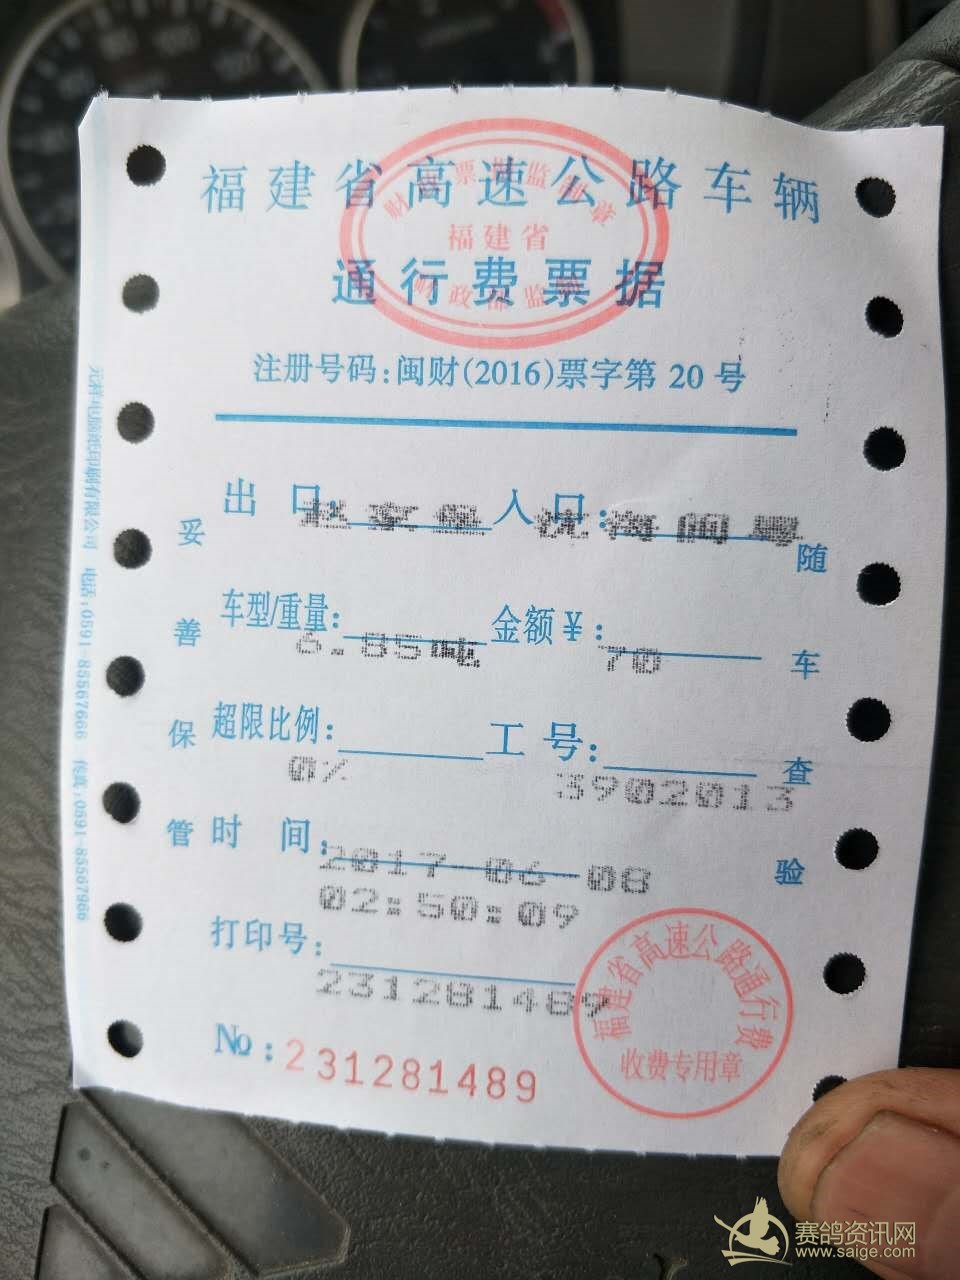 福建省高速公路车辆
通行费票据
福建省
注册号码:闽财(2016)票字第 20 号
出 口: 赵家堡 入 口: 沈海闽粤
车型/重量: 6.85吨 金额¥: 70
超限比例: 0% 工 号: 3902013
时 间: 2017-06-08
02:50:09
打印号: 231281489
№:231281489
福建省高速公路通行费
收费专用章
妥善保管
随车查验
电脑纸印刷有限公司 电话:0591-85567666 传真:0591-85567966
赛鸽资讯网
www.saige.com